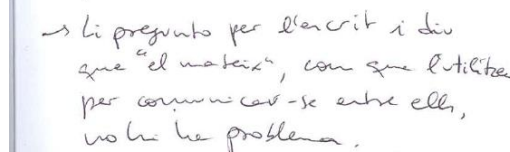 → Li pregunto per l'escrit i diu
que "el mateix", com que l'utilitzen
per comunicar-se entre ells,
no hi ha problema.